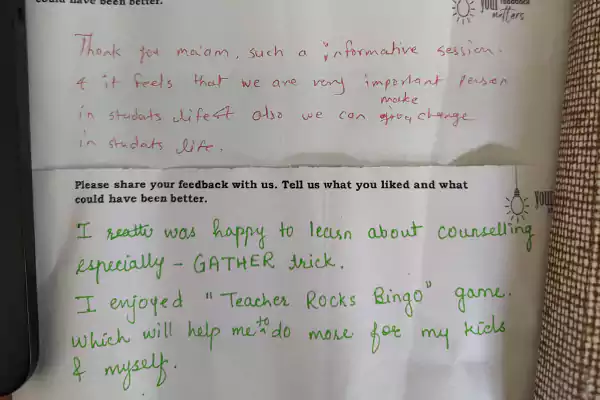 could have been better.
your feedback
matters
Thank you ma'am, such a informative session.
& it feels that we are very important person
in studats life & also we can make change
in studats life.
Please share your feedback with us. Tell us what you liked and what
could have been better.
you
I was happy to learn about counselling
especially - GATHER trick.
I enjoyed "Teacher Rocks Bingo" game.
which will help me to do more for my kids
& myself.